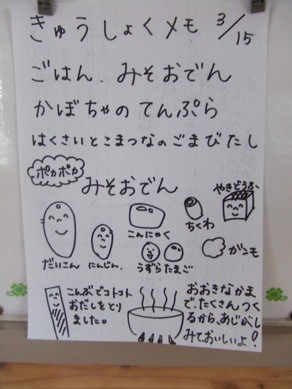 きゅうしょくメモ 3/15
ごはん．みそおでん
かぼちゃのてんぷら
はくさいとこまつなのごまびたし
ポカポカ
みそおでん
だいこん
にんじん
こんにゃく
うずらたまご
ちくわ
やきどうふ
がンモ
こんぶでコトコト
おだしをとり
ました。
おおきなかま
で、たくさんつく
るから、あじがし
みておいしいよ！